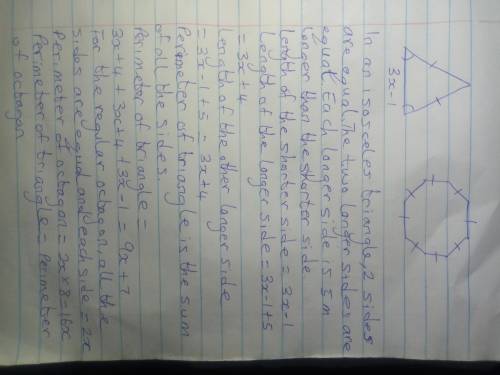 3x-1
In an isosceles triangle, 2 sides
are equal. The two longer sides are
equal. Each longer side is 5m
longer than the shorter side
length of the shorter side = 3x-1
Length of the longer side = 3x-1+5
= 3x+4
Length of the other longer side
= 3x-1+5 = 3x+4
Perimeter of triangle is the sum
of all the sides.
Perimeter of triangle =
3x+4+3x+4+3x-1 = 9x+7
For the regular octagon, all the
sides are equal and each side = 2x
perimeter of octagon = 2x×8=16x
Perimeter of triangle = Perimeter
of octagon